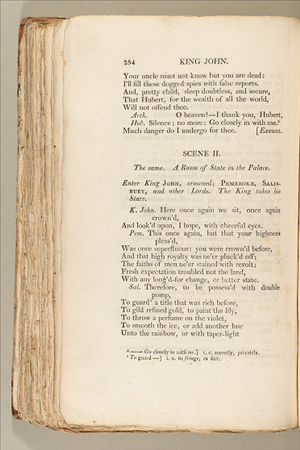 254 KING JOHN.
Your uncle must not know but you are dead:
I'll fill these dogged spies with false reports.
And, pretty child, sleep doubtless, and secure,
That Hubert, for the wealth of all the world,
Will not offend thee.
Arth. O heaven!—I thank you, Hubert,
Hub. Silence; no more: Go closely in with me.⁸
Much danger do I undergo for thee. [Exeunt.
SCENE II.
The same. A Room of State in the Palace.
Enter King JOHN, crowned; PEMBROKE, SALIS-
BURY, and other Lords. The King takes his
State.
K. John. Here once again we sit, once again
crown'd,
And look'd upon, I hope, with cheerful eyes.
Pem. This once again, but that your highness
pleas'd,
Was once superfluous: you were crown'd before,
And that high royalty was ne'er pluck'd off;
The faiths of men ne'er stained with revolt;
Fresh expectation troubled not the land,
With any long'd-for change, or better state.
Sal. Therefore, to be possess'd with double
pomp,
To guard⁹ a title that was rich before,
To gild refined gold, to paint the lily,
To throw a perfume on the violet,
To smooth the ice, or add another hue
Unto the rainbow, or with taper-light
⁸ —— Go closely in with me.] i. e. secretly, privately.
⁹ To guard —] i. e. to fringe, or lace.